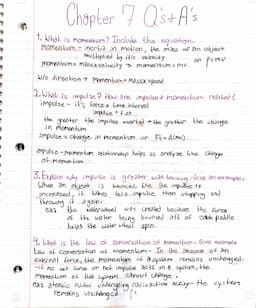 Chapter 7 Q's + A's
1. What is momentum? Include the equation.
Momentum - inertia in motion, the mass of an object
multiplied by it's velocity
momentum = mass x velocity → momentum = mv or p = mv
W/o direction → momentum = mass x speed
2. What is impulse? How are impulse + momentum related?
impulse - it's force x time interval
impulse = F at
the greater the impulse exerted → the greater the change
in momentum
impulse = change in momentum or Ft = Δ(mv)
impulse - momentum relationship helps us analyze the change
of momentum
3. Explain why impulse is greater with bouncing. Give an example.
When an object is bounced, the the impulse is
increased, it takes less impulse than stopping and
throwing it again.
ex: the waterwheel was created because the force
of the water being bounced off of paddle
helps the water wheel spin.
4. What is the law of conservation of momentum. Give example
Law of conservation of momentum - In the absence of an
external force, the momentum of a system remains unchanged.
if no net force or net impulse acts on a system, the
momentum of that system cannot change.
ex: atomic nuclei undergoing radioactive decay - the system
remains unchanged